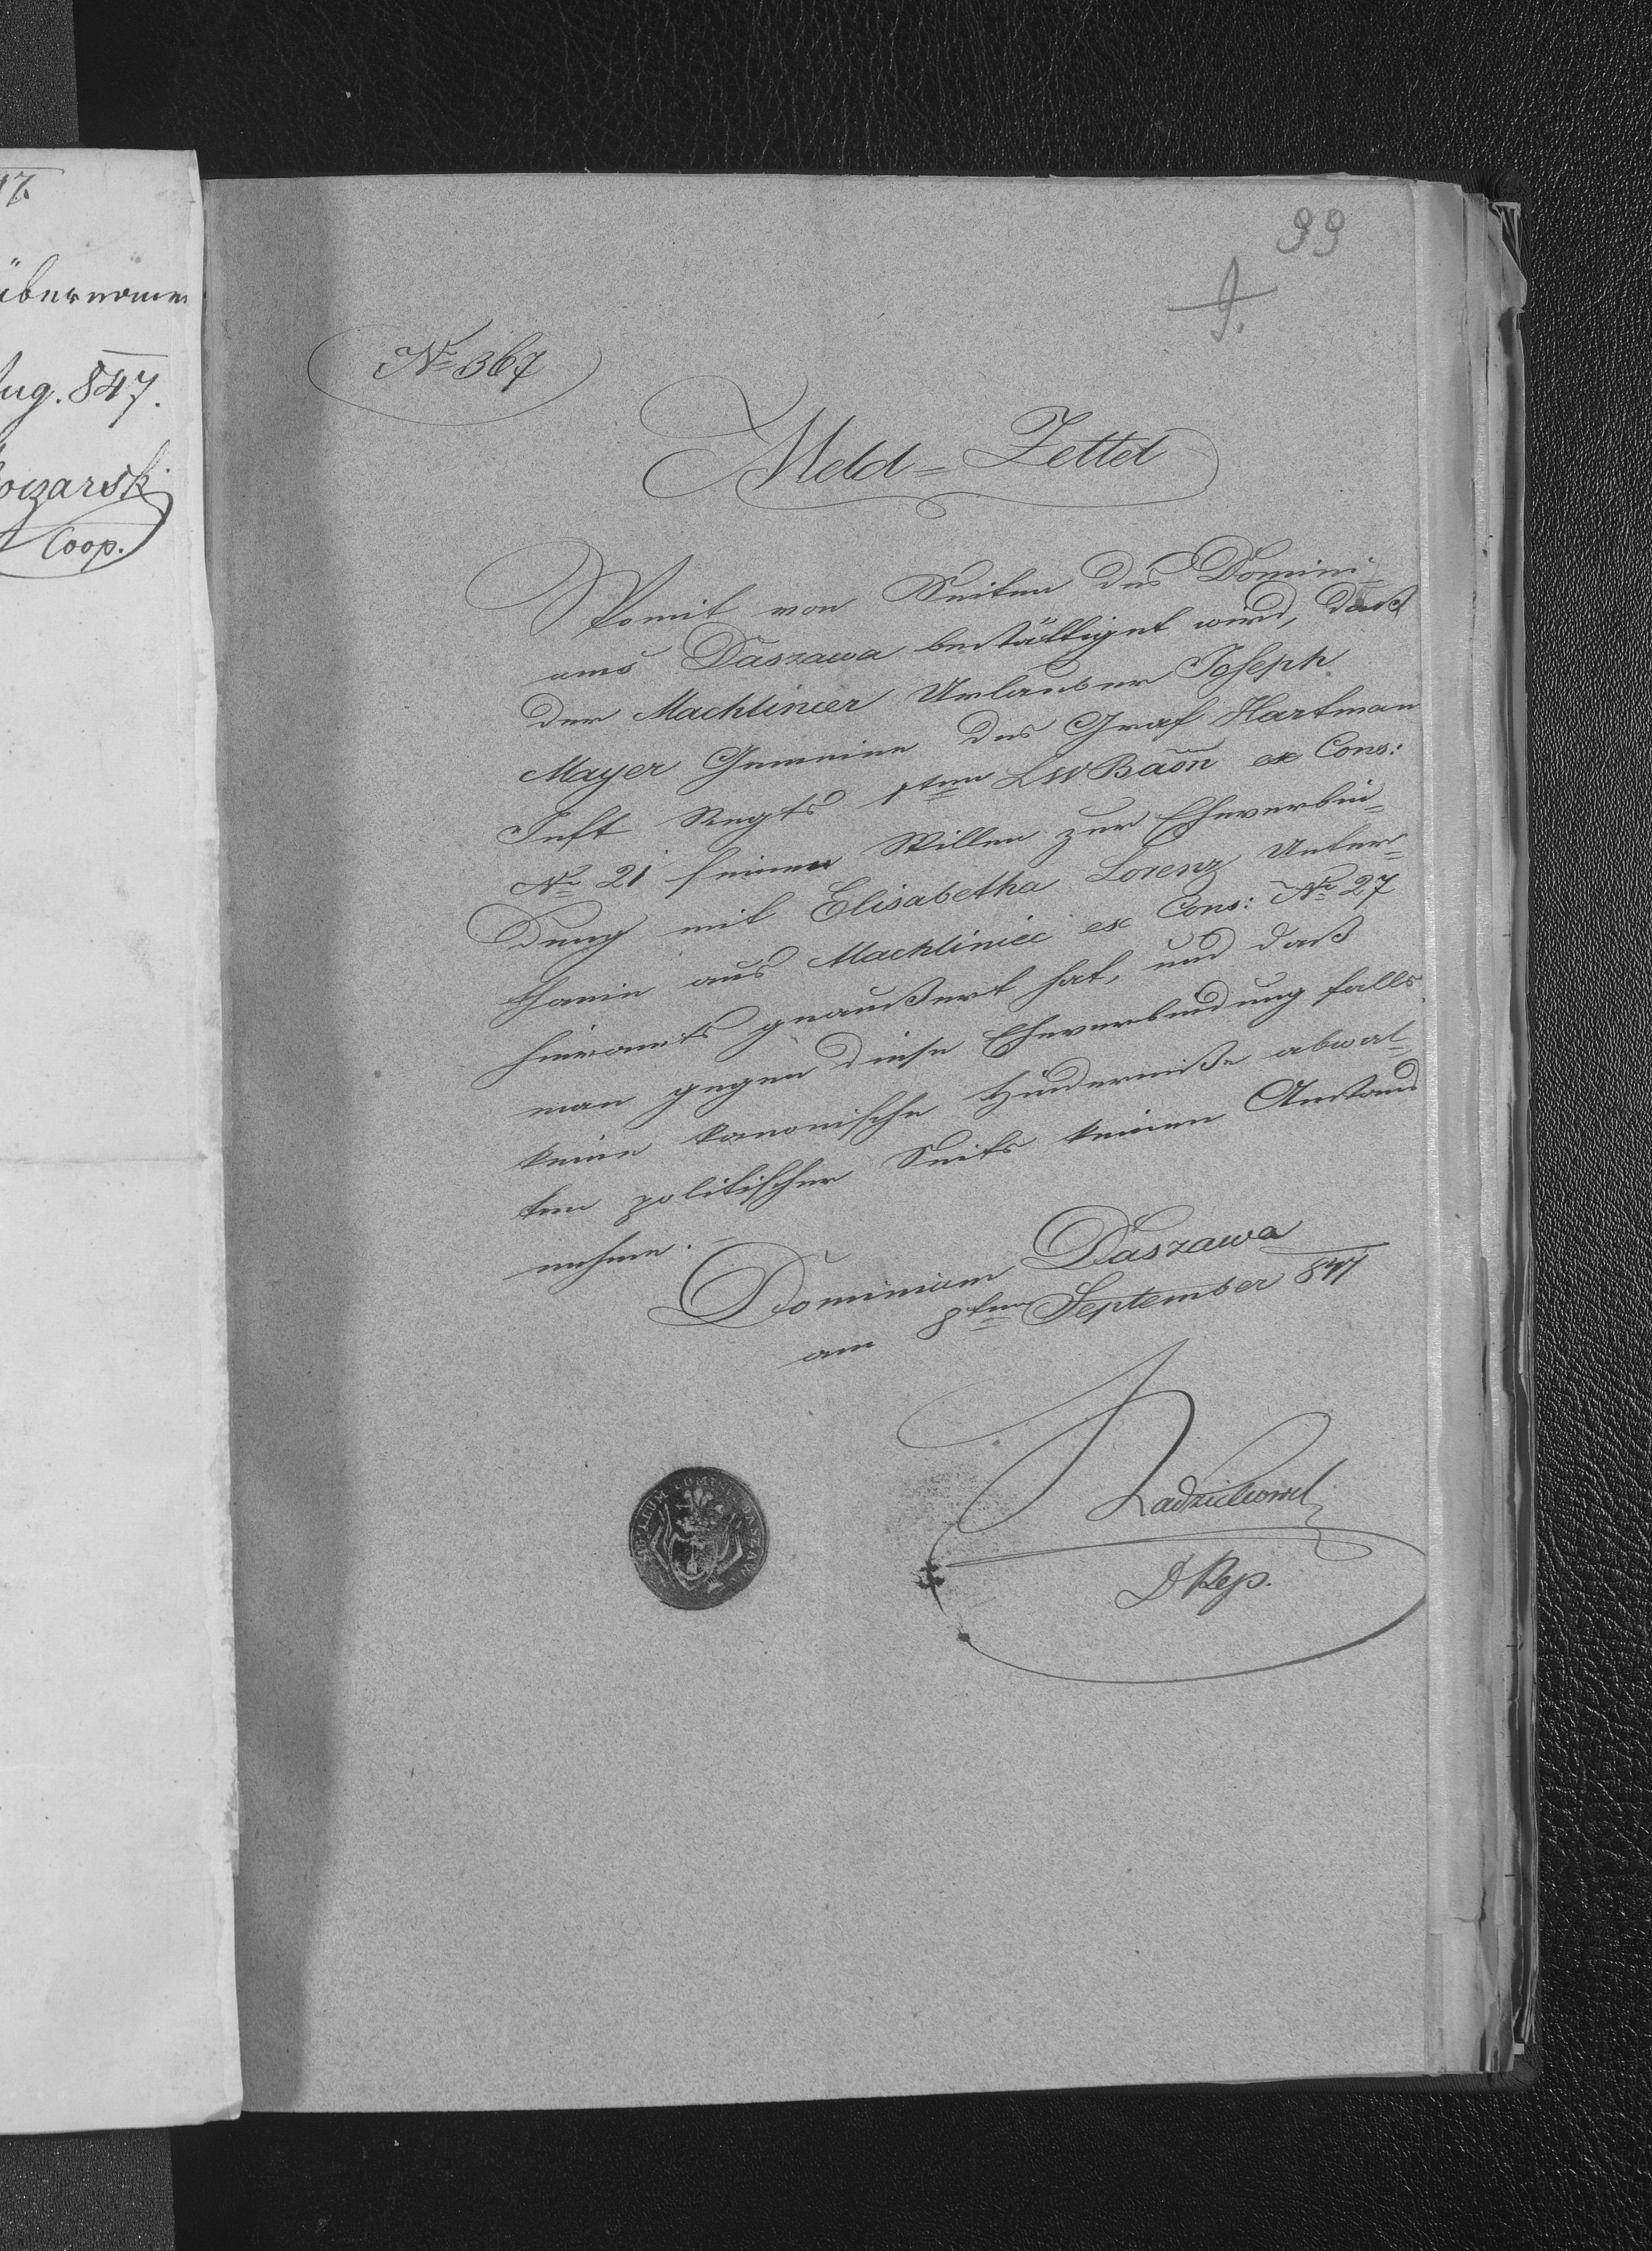 17.
übernomen
Aug. 847.
Coop.
99
9.
No 367
Meld=Zettel
Womit von Seiten des Domini-
ums Daszawa bestättiget wird, daß
der Machliniecer Urlauber Joseph
Mayer Gemeine des Graf Hartman
Inft Regts 1ten LWBaon ex Cons:
No 21 seinen Willen zur Eheverbin=
dung mit Elisabetha Lorenz Unter=
thanin aus Machliniec ex Cons: No 27
hieramts geaußert hat, und daß
man gegen diese Eheverbindung falls
keine kanonische Hinderniße abwal=
ten politischer Seits keinen Anstand
nehme.
Dominium Daszawa
am 8ten September 847
DRep.
SIGILLUM DASZAW